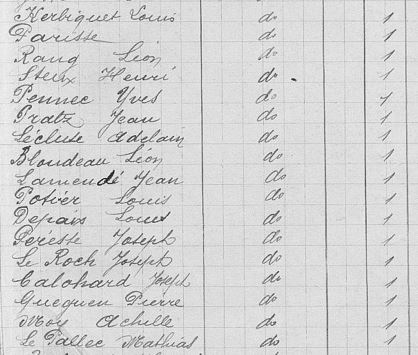 Kerbiquet Louis do 1
Parisse do 1
Rang Léon do 1
Steux Henri do 1
Pennec Yves do 1
Pratz Jean do 1
Lécluse Adelain do 1
Blondeau Léon do 1
Lamendé Jean do 1
Potier Louis do 1
Depais Louis do 1
Péresse Joseph do 1
Le Roch Joseph do 1
Calohard Joseph do 1
Gueguen Pierre do 1
Moy Achille do 1
Le Pallec Mathias do 1